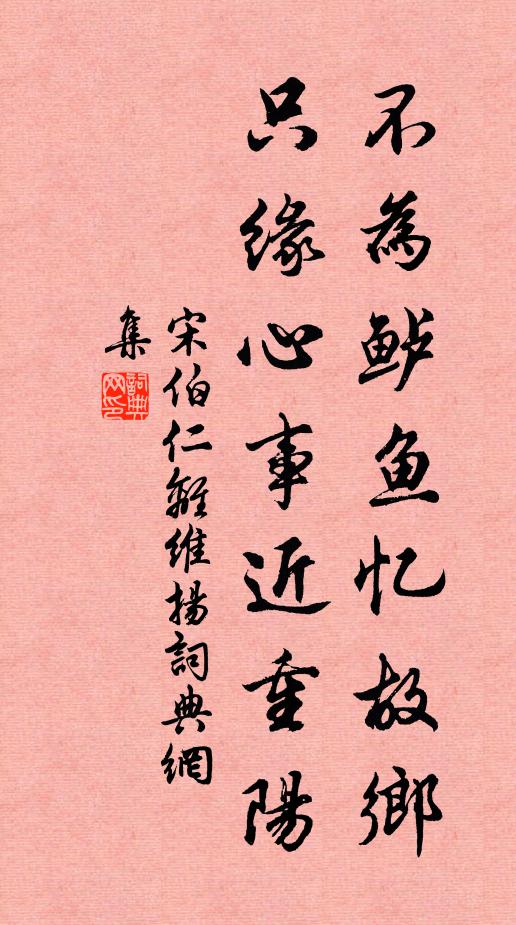 不為鲈鱼忆故鄉
只緣心事近重陽
宋伯仁離維揚詞典網
集
詞典
网印